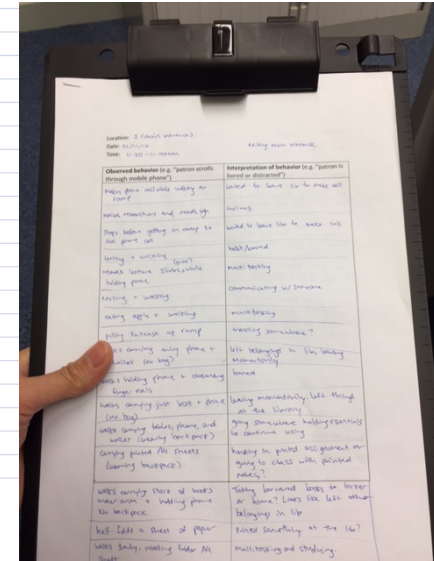 Location: 2 (main entrance)
Date:
Time: 11:30 -
exiting main entrance
Observed behavior (e.g. "patron scrolls through mobile phone")
Interpretation of behavior (e.g. "patron is bored or distracted")
makes phone call while walking on ramp
wanted to leave lib to make call
notices researchers and reads sign
curious
stops before getting on ramp to
wanted to leave lib to make call
texting + walking
reads lecture slides while holding phone
multitasking
texting + walking
communicating w/ someone
eating apple + walking
multitasking
pulling suitcase up ramp
travelling somewhere?
carrying only phone + wallet (no bag)
left belongings in lib, leaving momentarily
walks holding phone + finger nails
bored
walks carrying just book + phone (no bag)
leaving momentarily, left things at the library
walks carrying tablet, phone, and wallet (wearing backpack)
going somewhere, holding essentials to continue using
carrying printed A4 sheets (wearing backpack)
handing in printed assignment or going to class with printed notes?
walks carrying stack of books under arm + holding phone
No backpack
Taking borrowed books to locker or home? Looks like left other belongings in lib
half folds a sheet of paper
Printed something at the lib?
walks slowly, reading folded A4 sheet
Multitasking and studying.